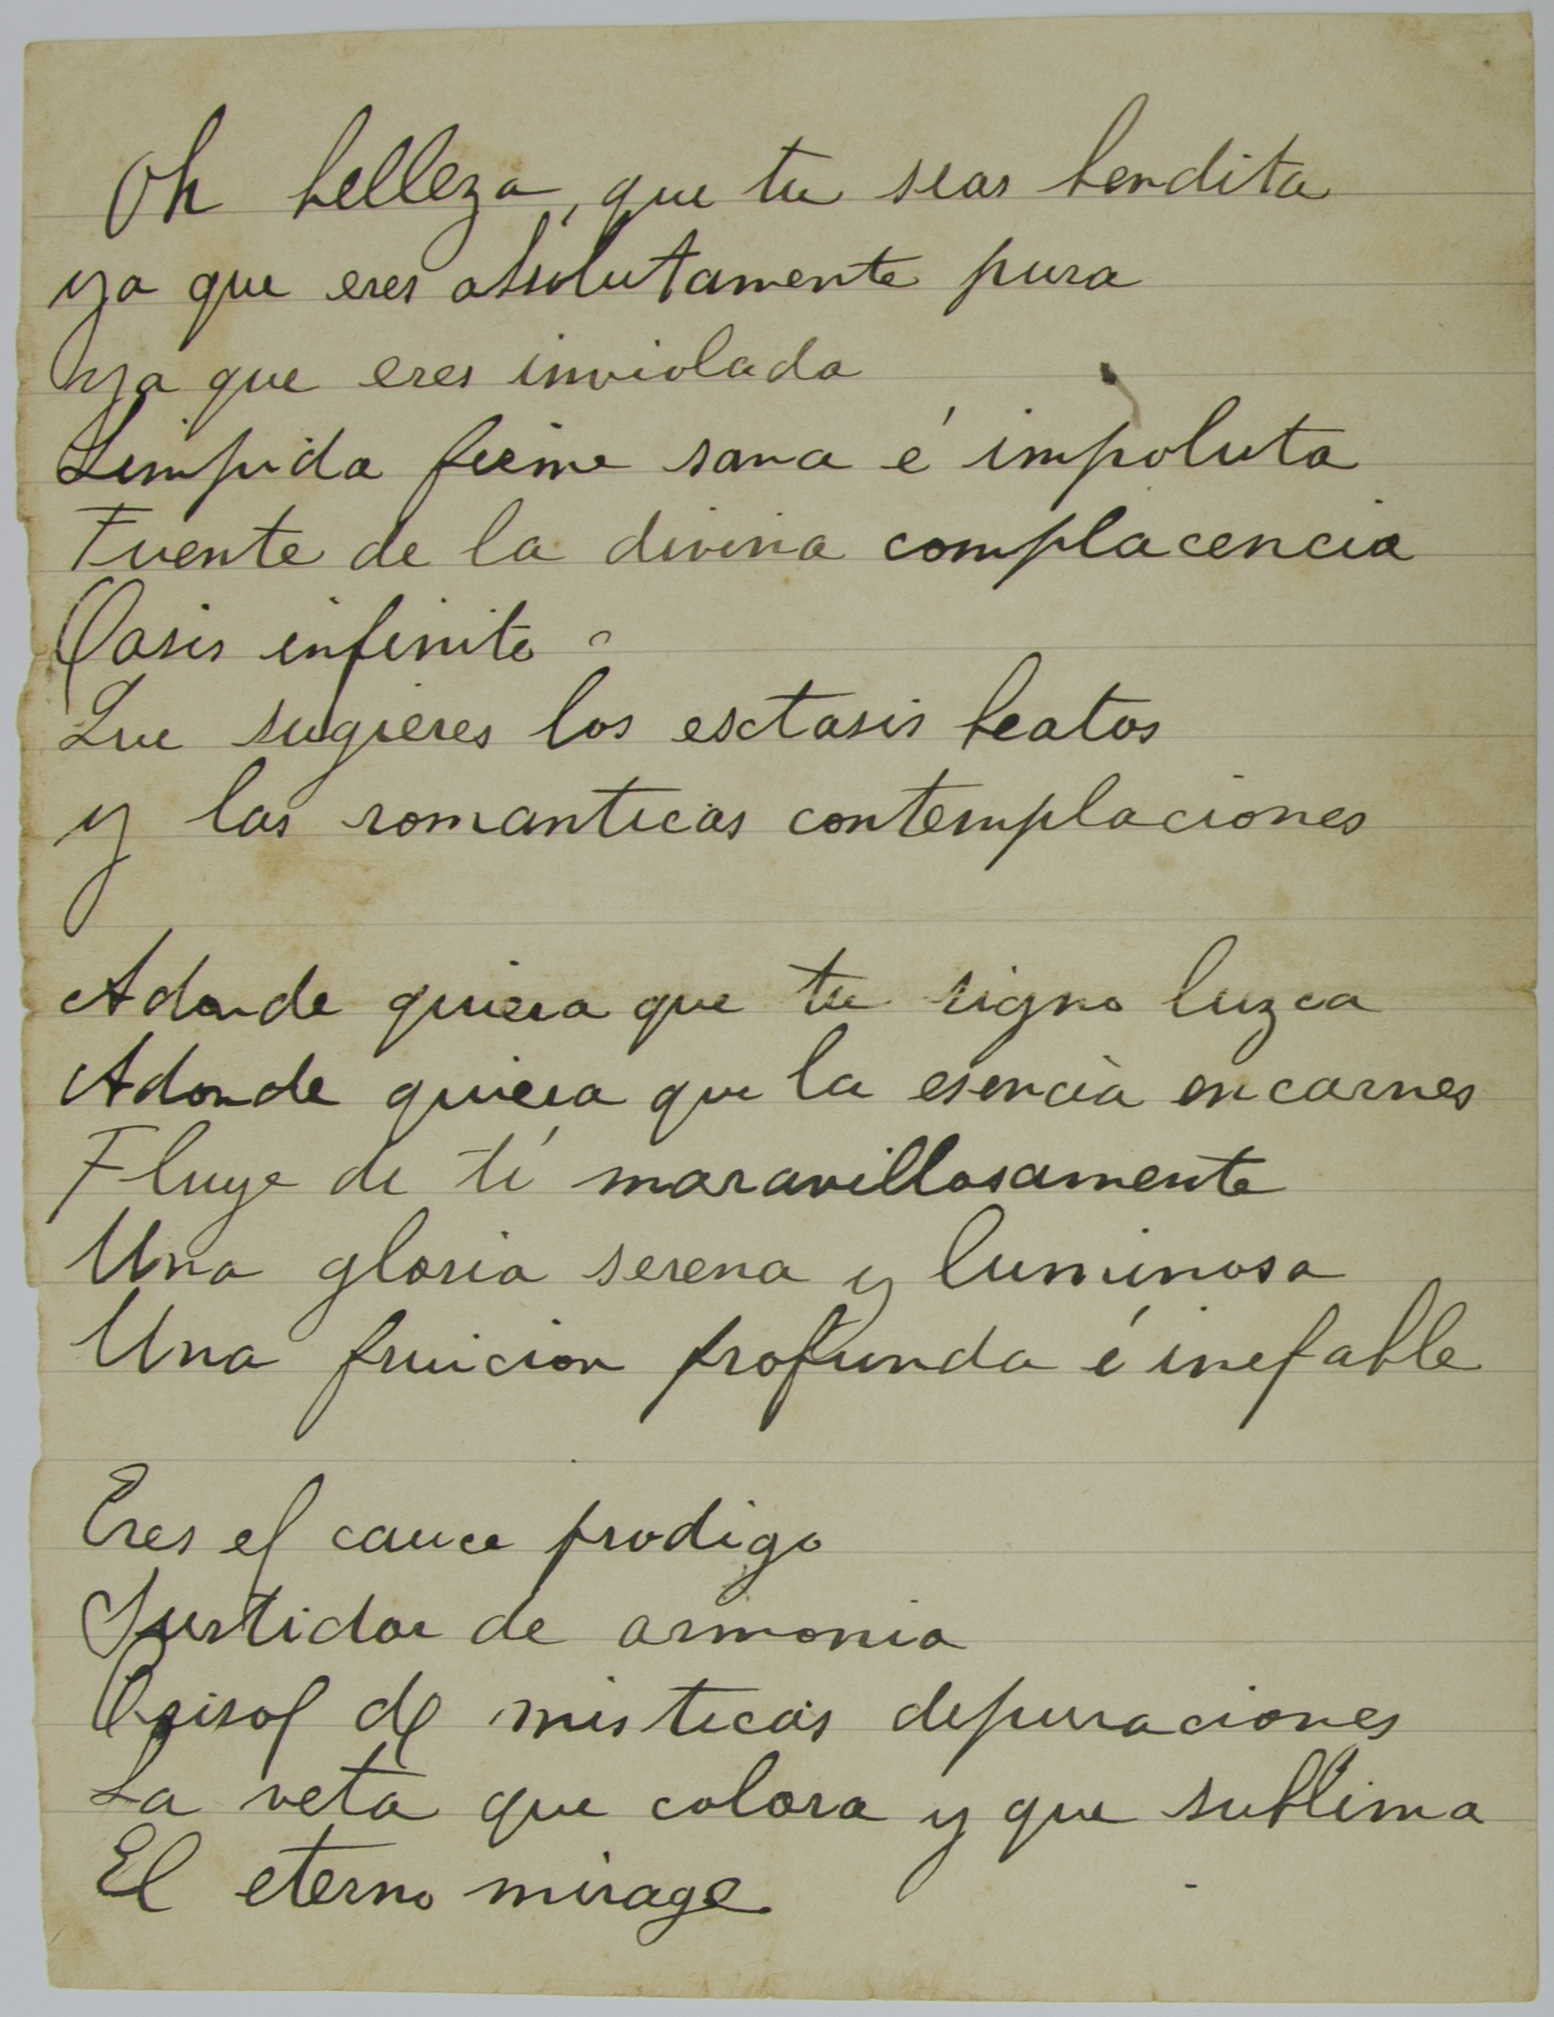 Oh belleza, que tu seas bendita
ya que eres absolutamente pura
ya que eres inviolada
Limpida firme sana é impoluta
Fuente de la divina complacencia
Oasis infinito
Que sugieres los esctasis beatos
y las romanticas contemplaciones
Adonde quiera que tu signo luzca
Adonde quiera que la esencia encarnes
Fluye de tí maravillosamente
Una gloria serena y luminosa
Una fruicion profunda é inefable
Eres el cauce prodigo
Surtidor de armonia
Crisol de misticas depuraciones
La veta que colora y que sublima
El eterno mirage